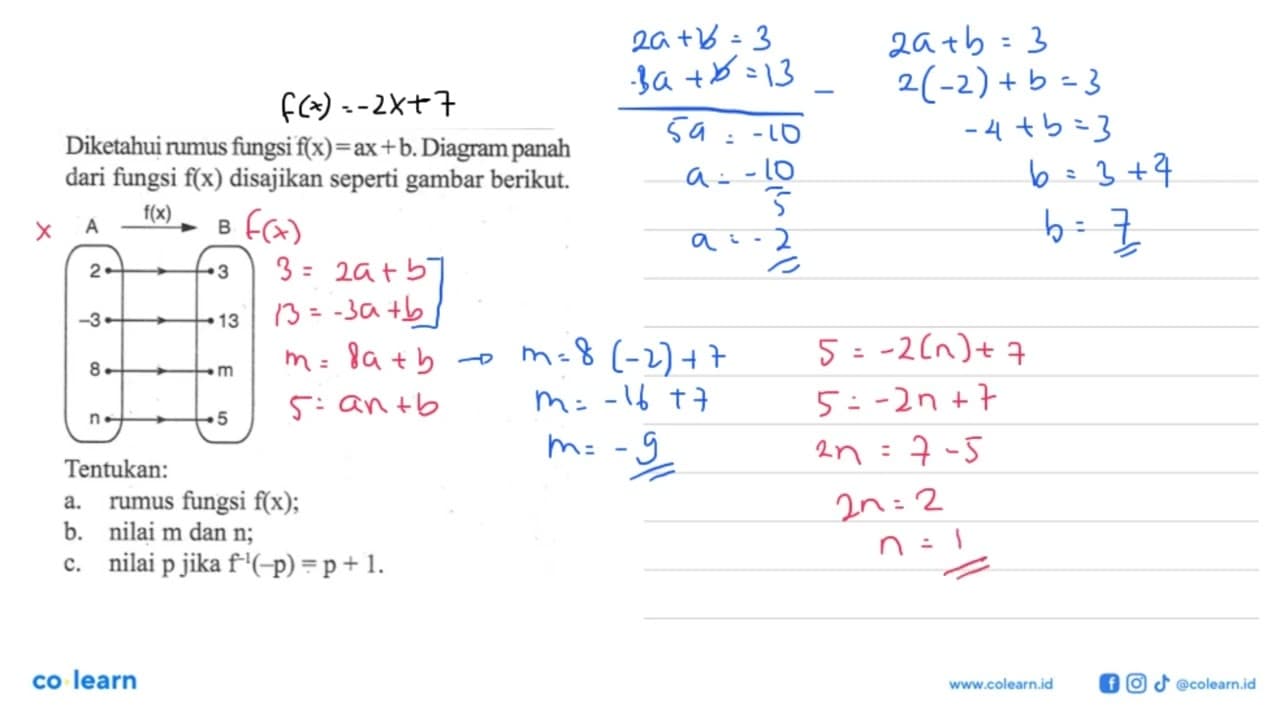 f(x) = -2x+7
Diketahui rumus fungsi f(x)=ax+b. Diagram panah
dari fungsi f(x) disajikan seperti gambar berikut.
x A f(x) B f(x)
2 3 3 = 2a+b
-3 13 13 = -3a+b
8 m m = 8a+b → m=8(-2)+7
n 5 5 = an+b
m= -16 +7
m= -9
Tentukan:
a. rumus fungsi f(x);
b. nilai m dan n;
c. nilai p jika f⁻¹(–p) = p + 1.
2a+b = 3
-3a+b=13 –
5a = -10
a = -10
5
a = -2
2a+b = 3
2(-2)+b=3
-4+b=3
b = 3+4
b = 7
5 = -2(n)+7
5 = -2n+7
2n = 7-5
2n=2
n = 1
co learn
www.colearn.id
@colearn.id